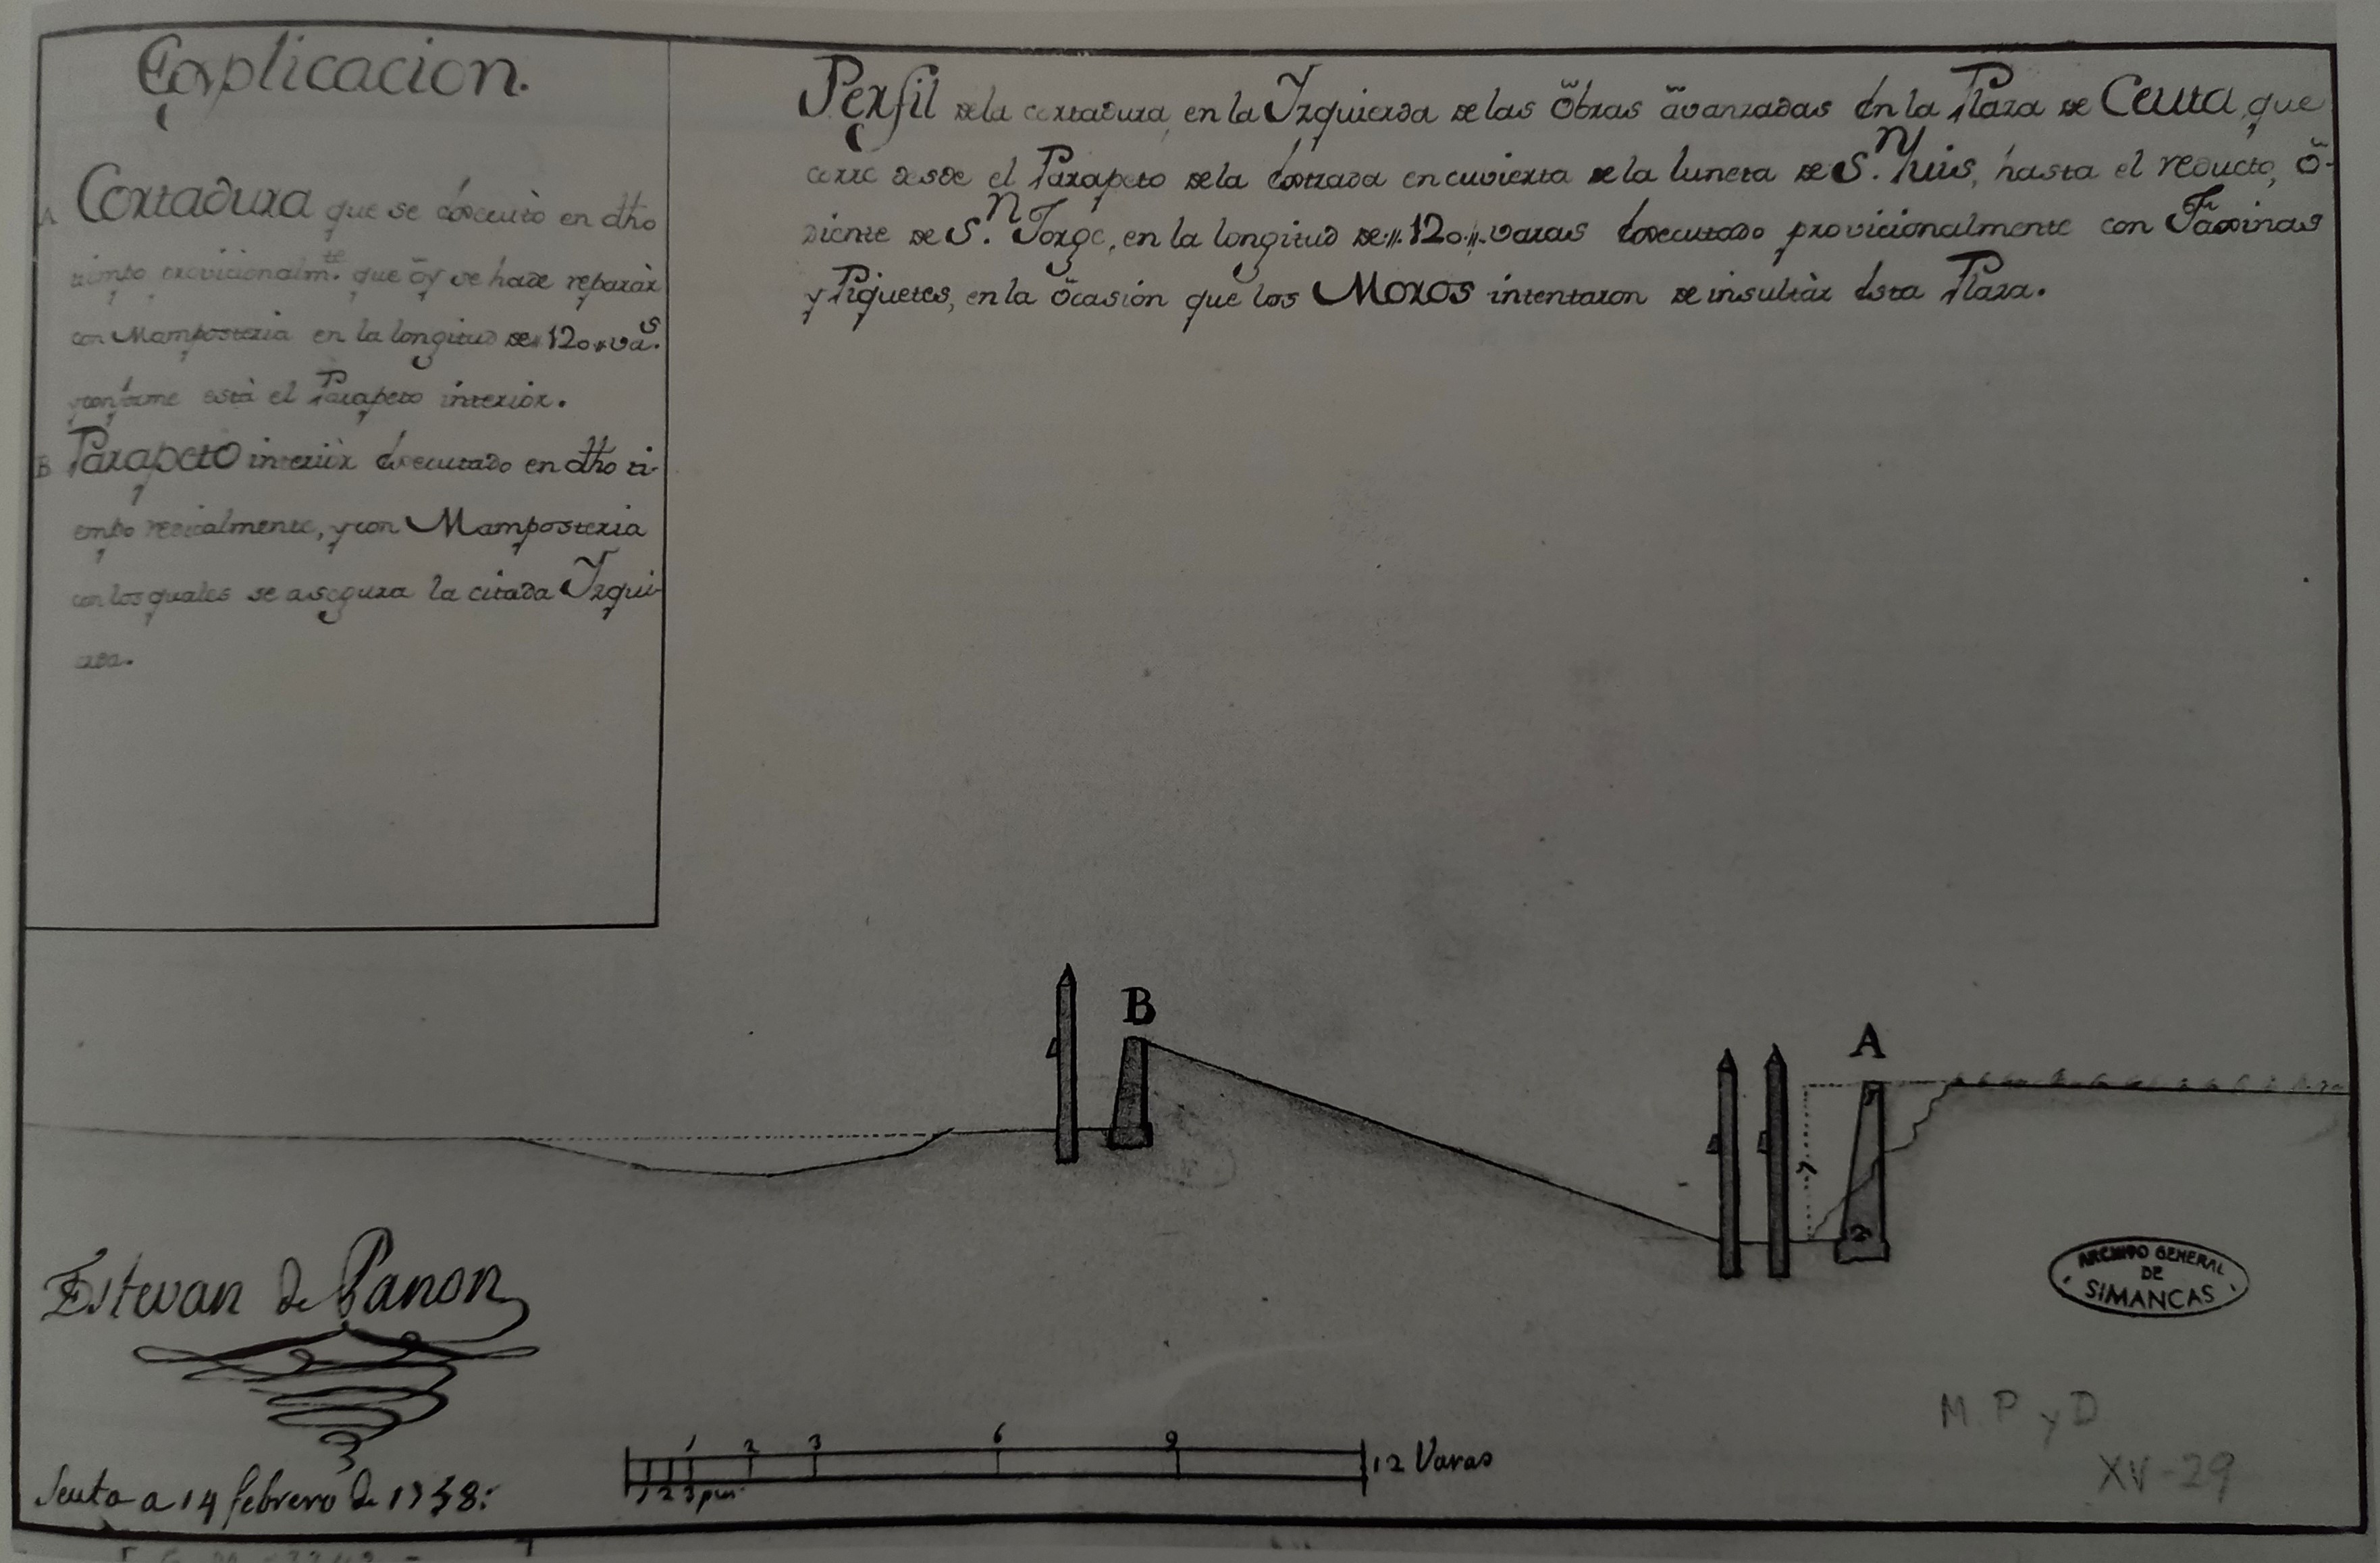 Explicacion.
A Cortadura que se ejecutò en dho
tiempo provicionalm.te que oy se hace reparàr
con Mamposteria en la longitud de 120 va.s
y conforme està el Parapeto interiòr.
B Parapeto interiòr ejecutado en dho ti-
empo realmente, y con Mamposteria
con los quales se asegura la citada Izqui-
erda.
Perfil dela cortadura, en la Izquierda de las Obras avanzadas en la Plaza de Ceuta, que
corre desde el Parapeto dela Entrada encuvierta de la luneta de S.n Luis, hasta el reducto, o-
diente de S.n Jorge, en la longitud de 120 varas ejecutado provicionalmente con Faxinas
y Piquetes, en la ocasión que los Moros intentaron de insultàr esta Plaza.
B
A
7
2
Estevan de Panon
Seuta a 14 febrero de 1738:
1 2 3 6 9 12 Varas
1 2 3 pies
ARCHIVO GENERAL
DE
SIMANCAS
M. P y D
XV-29